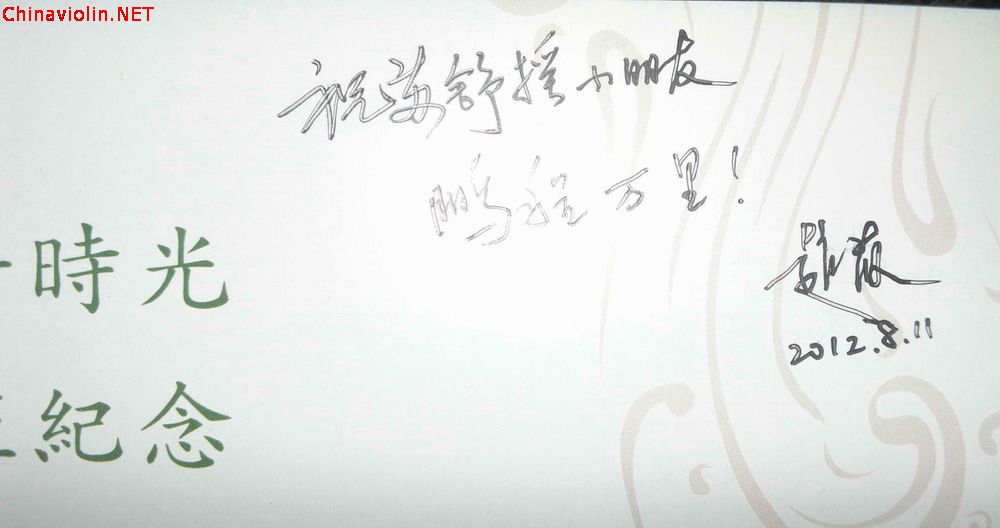 Chinaviolin.NET
祝 舒 小朋友
鹏程万里!
2012.8.11
時光
紀念